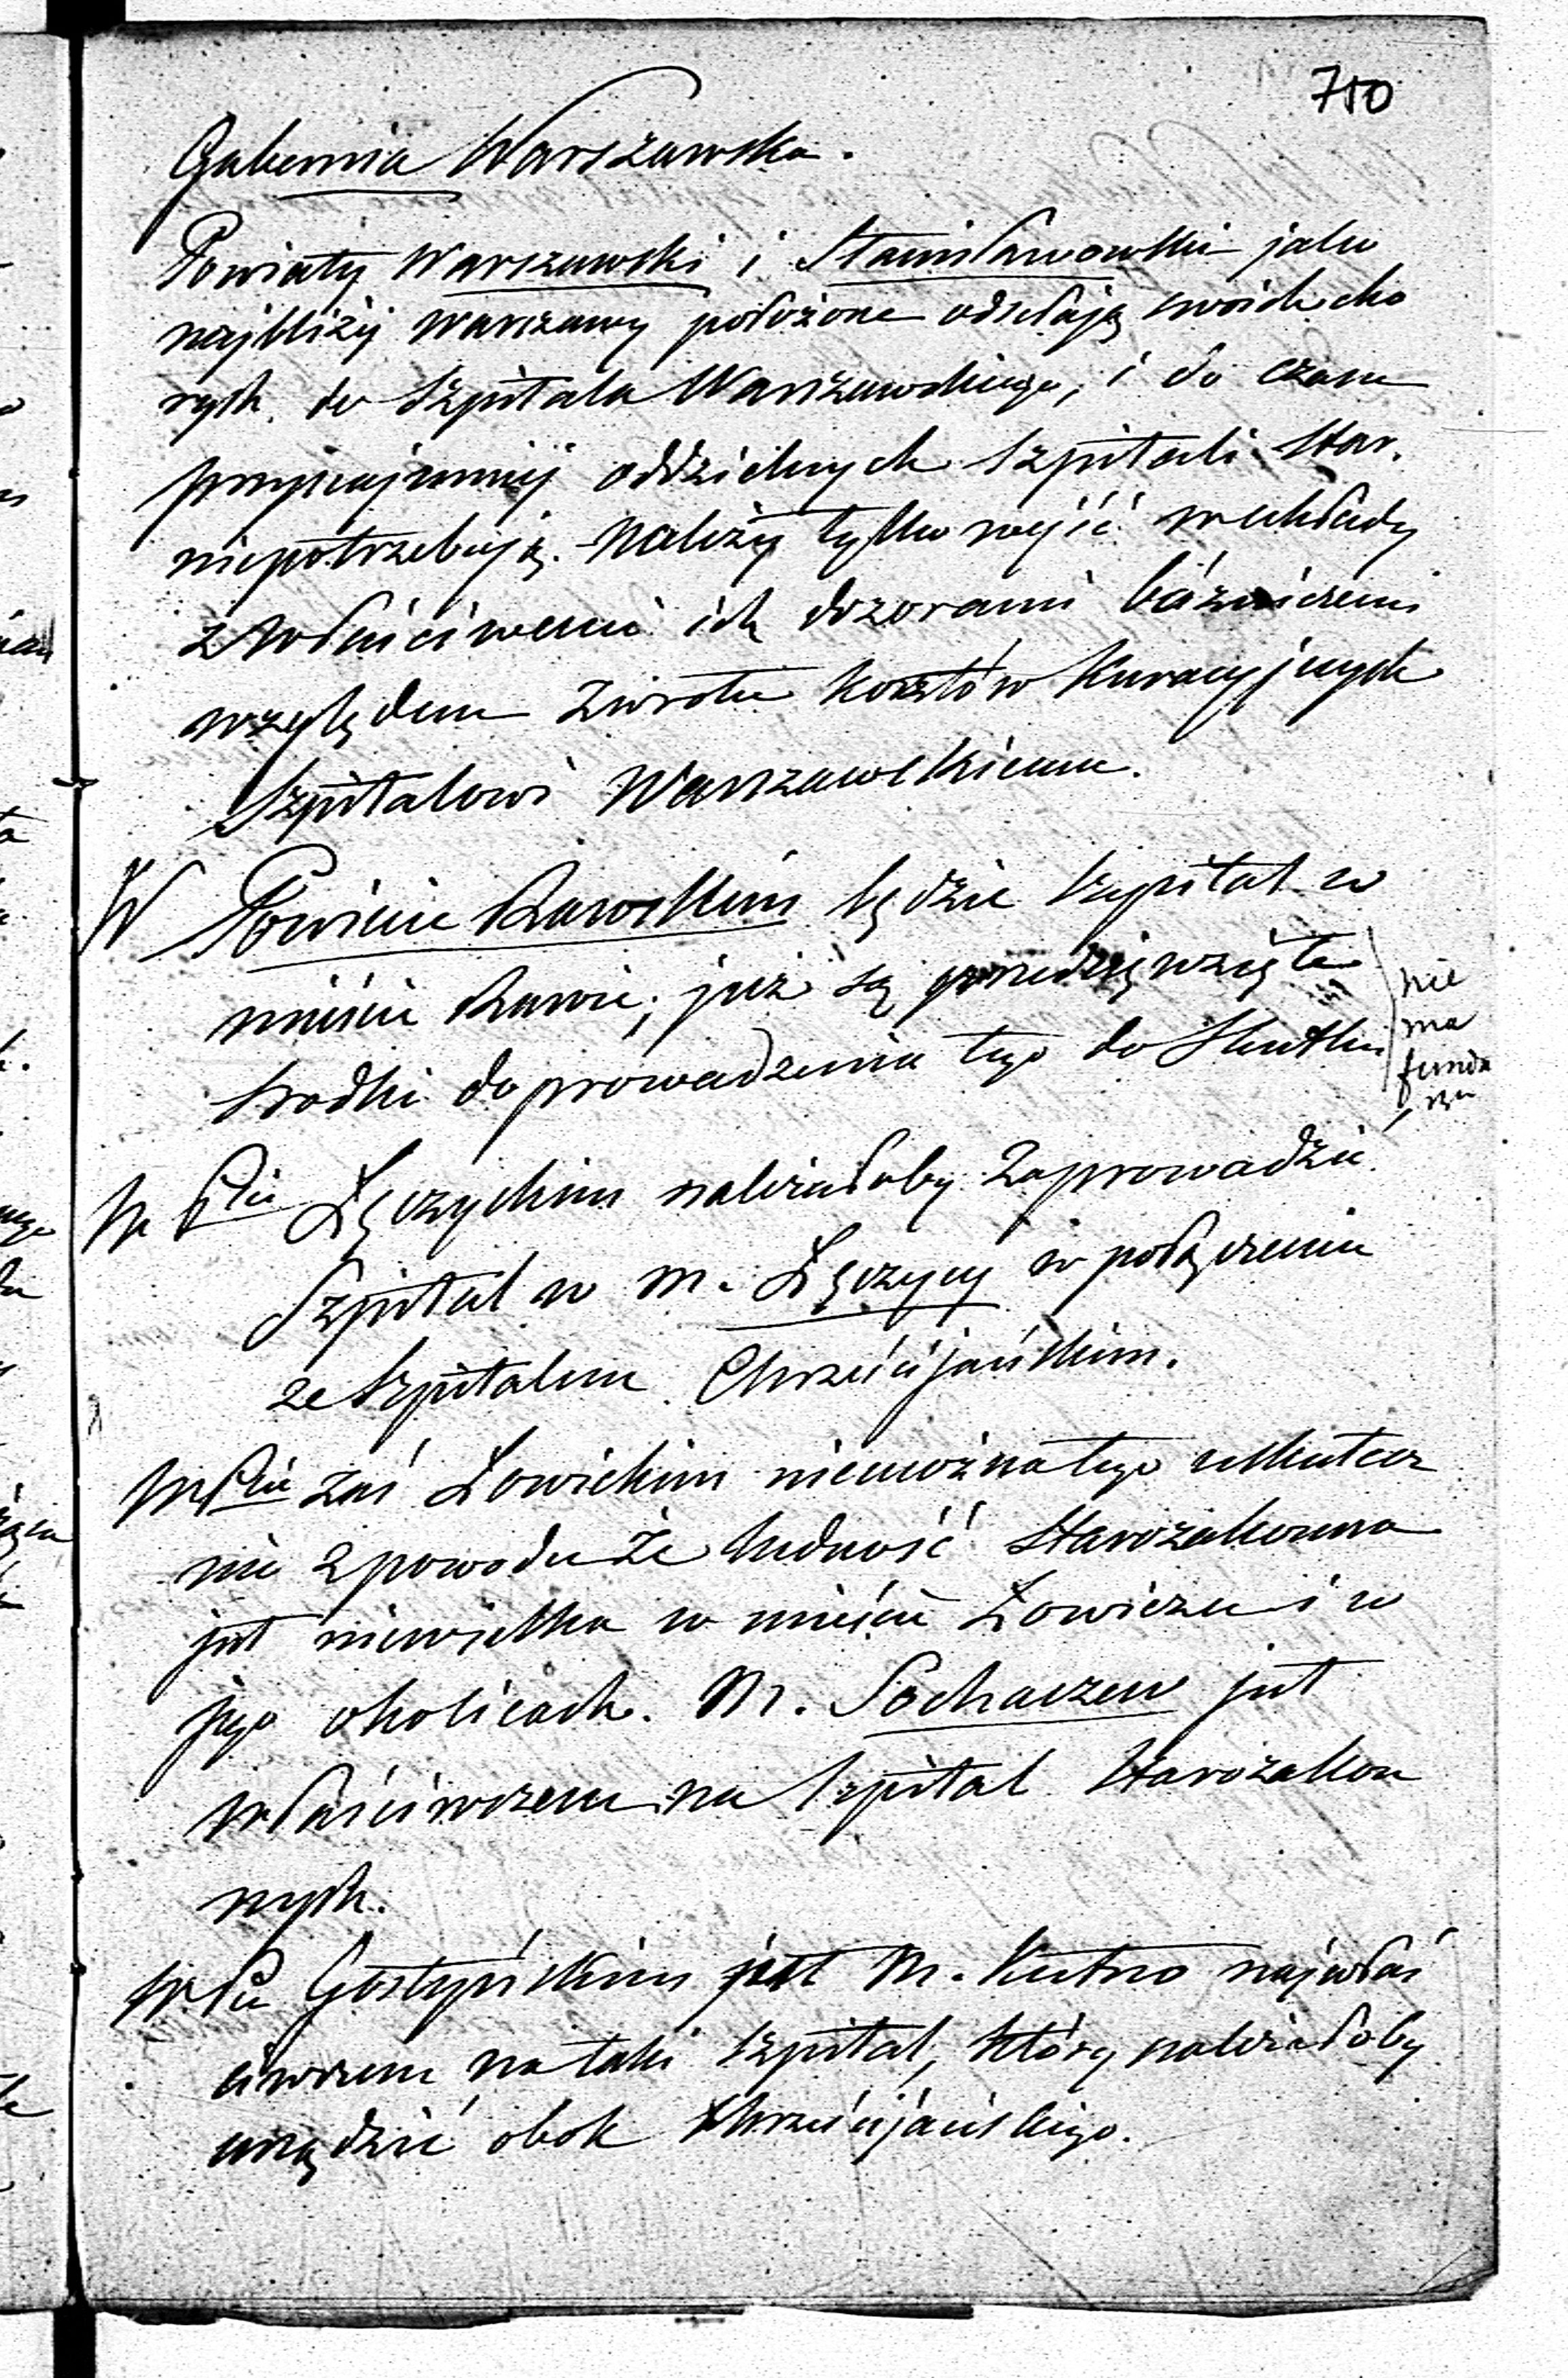 710
Gubernia Warszawska.
Powiaty Warszawski i Stanisławowski jako
najbliżej Warszawy położone odsełają swoich cho
rych do Szpitala Warszawskiego, i do czasu
przynajmniej oddzielnych Szpitali Star.
niepotrzebują. Należy tylko wejść w układy
z właściwemi ich dozorami bóżniczemi
względem zwrotu kosztów kuracyjnych
Szpitalowi Warszawskiemu.
W Powiecie Rawskim będzie szpital w
mieście Rawie, już są przedsięwzięte
środki doprowadzenia tego do skutku
nie
ma
fundu
szu
W Pcie Łęczyckim należałoby zaprowadzić
Szpital w m. Łęczycy w połączeniu
ze Szpitalem Chrześcijańskim.
W Pcie zaś Łowickim niemożna tego uskutecz
nić z powodu że ludność starozakonna
jest niewielka w mieście Łowiczu i w
jego okolicach. M. Sochaczew jest
właściwszem na szpital starozakon
nych.
W Pcie Gostyńskim jest M. Kutno najwłaś
ciwszem na taki szpital, który należałoby
urządzić obok Chrześcijańskiego.